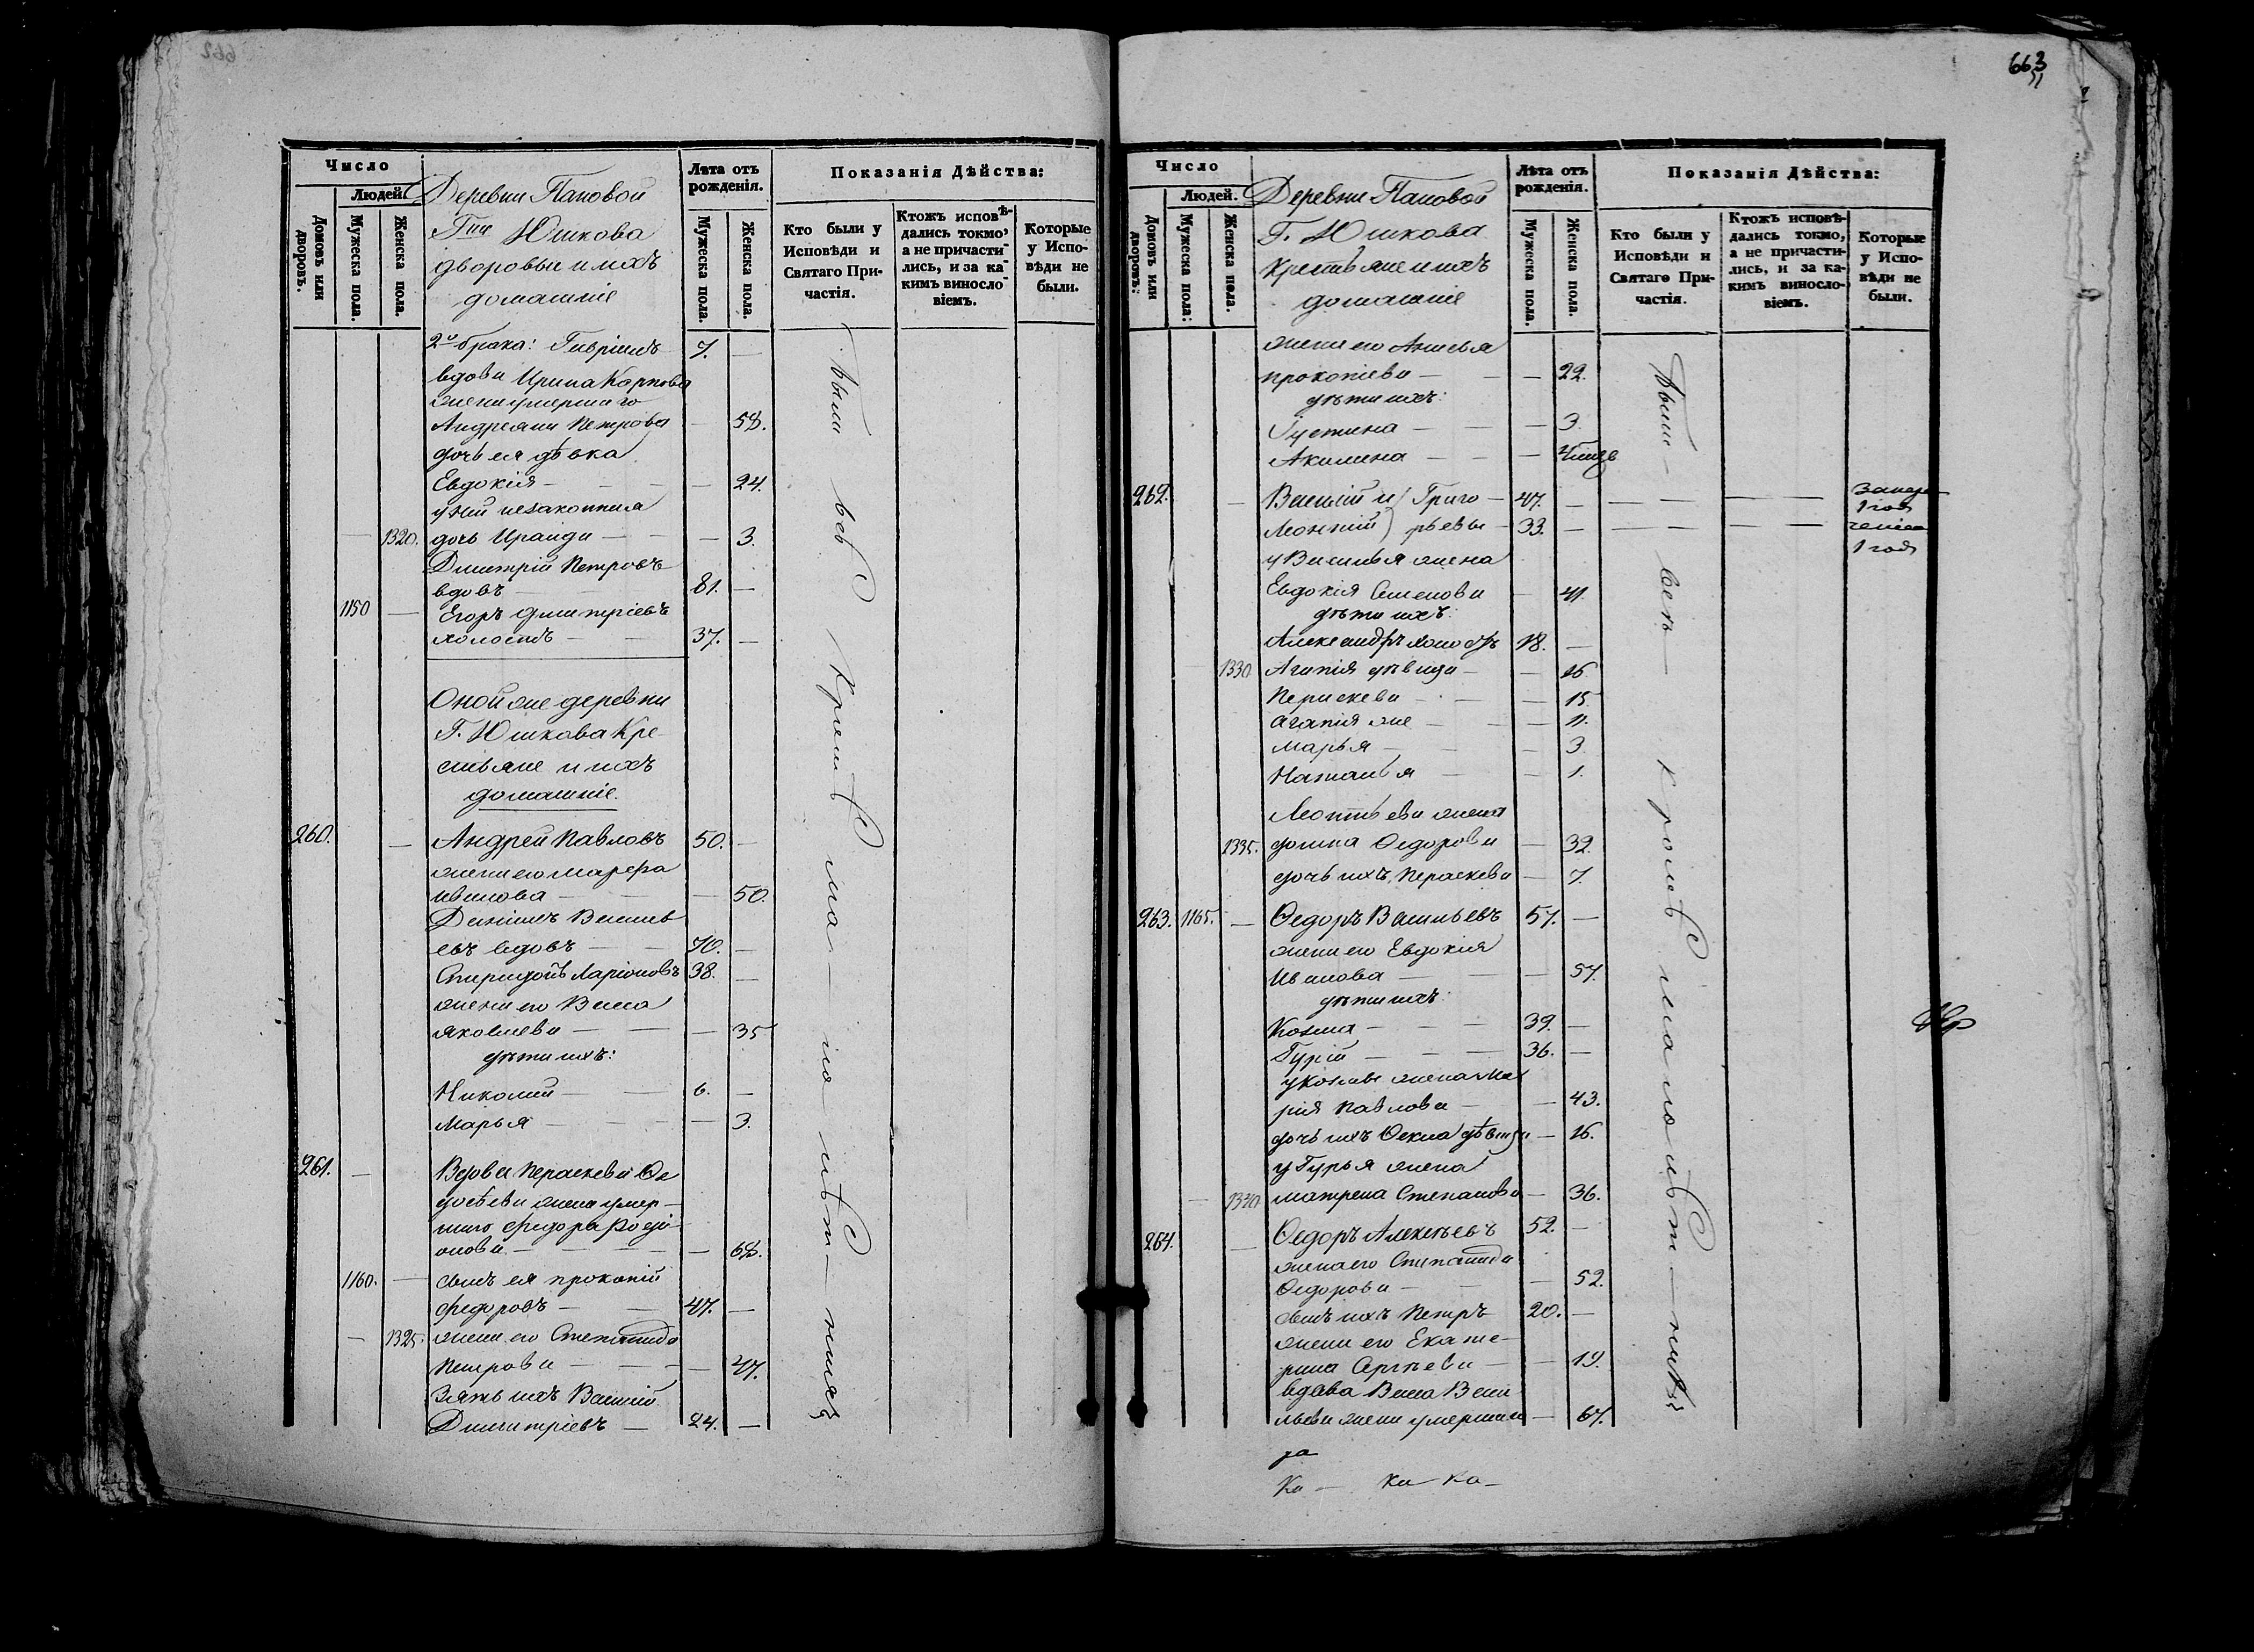 662
Число
Людей.
Домовъ или дворовъ.
Мужеска пола.
Женска пола.
Деревни Пановой
Г-на Юшкова
дворовые и ихъ
домашніе
Лѣта отъ рожденія.
Мужеска пола.
Женска пола.
Показанія Дѣйства:
Кто были у Исповѣди и Святаго Причастія.
Ктожъ исповѣдались токмо, а не причастились, и за какимъ винословіемъ.
Которые у Исповѣди не были.
2го брака: Гавріилъ 7. —
вдова Ирина Карпова
жена умершаго
Андреяна Петрова — 58.
дочь ея дѣвка
Евдокія — — 24.
у ней незаконная
— 1320. дочь Ираида — — 3.
Дмитрій Петровъ
вдовъ 81. —
1150 — Егоръ Дмитріевъ
холостъ — 37. —
Оной же деревни
Г. Юшкова Кре
стьяне и ихъ
домашніе.
260. — Андрей Павловъ 50. —
жена его Марфа
Иванова — — 50.
Даніилъ Василь
евъ вдовъ — 70. —
Спиридонъ Ларіоновъ 38. —
жена его Васса
Яковлева — — 35
дѣти ихъ:
Николай — 6. —
Марья — — 3.
261. — Вдова Параскева Ѳе
досѣева жена умер—
шаго Федора Роді
онова — — 68.
1160. — сынъ ея Прокопій
Федоровъ — 47. —
— 1325. жена его Степанида
Петрова — — 47.
Зять ихъ Василій
Дмитріевъ — 24. —
Были всѣ кромѣ ма — ло лѣт — нихъ
663
Число
Людей.
Домовъ или дворовъ:
Мужеска пола:
Женска пола.
Деревни Пановой
Г. Юшкова
Крестьяне и ихъ
домашніе
Лѣта отъ рожденія.
Мужеска пола.
Женска пола.
Показанія Дѣйства:
Кто были у Исповѣди и Святаго Причастія.
Ктожъ исповѣдались токмо, а не причастились, и за какимъ винословіемъ.
Которые у Исповѣди не были.
жена его Анисья
Прокопіева — — 22.
дѣти ихъ:
Іустина — — 3.
Акилина — —
262. — Василій и) Григо — 47. —
1 год
Леонтій) рьевы — 33. —
1 год
у Василья жена
Евдокія Семенова — 41.
дѣти ихъ:
Александръ холостъ 18. —
1330 Агапія дѣвица — — 16
Параскева — — 15.
Агапія же — — 11.
Марья — — 3
Наталья — — 1.
Леонтьева жена
1335. Домна Ѳедорова — 32.
дочь ихъ Параскева — 7.
263. 1165. — Ѳедоръ Васильевъ 57. —
жена его Евдокія
Иванова — — 57.
дѣти ихъ:
Козма — 39. —
Гурій — 36. —
у Козмы жена Ма
рія Павлова — — 43.
дочь ихъ Ѳекла дѣвица — 16.
у Гурья жена
— 1340 Матрена Степанова — 36.
264. — Ѳедоръ Алексѣевъ 52. —
жена его Степанида
Ѳедорова — — 52.
сынъ ихъ Петръ 20. —
жена его Екате—
рина Сергѣева — — 19.
вдова Васса Васи
льева жена умершаго — 67.
Были — всѣ — кромѣ малолѣт — нихъ
за
Ка — ка ка —